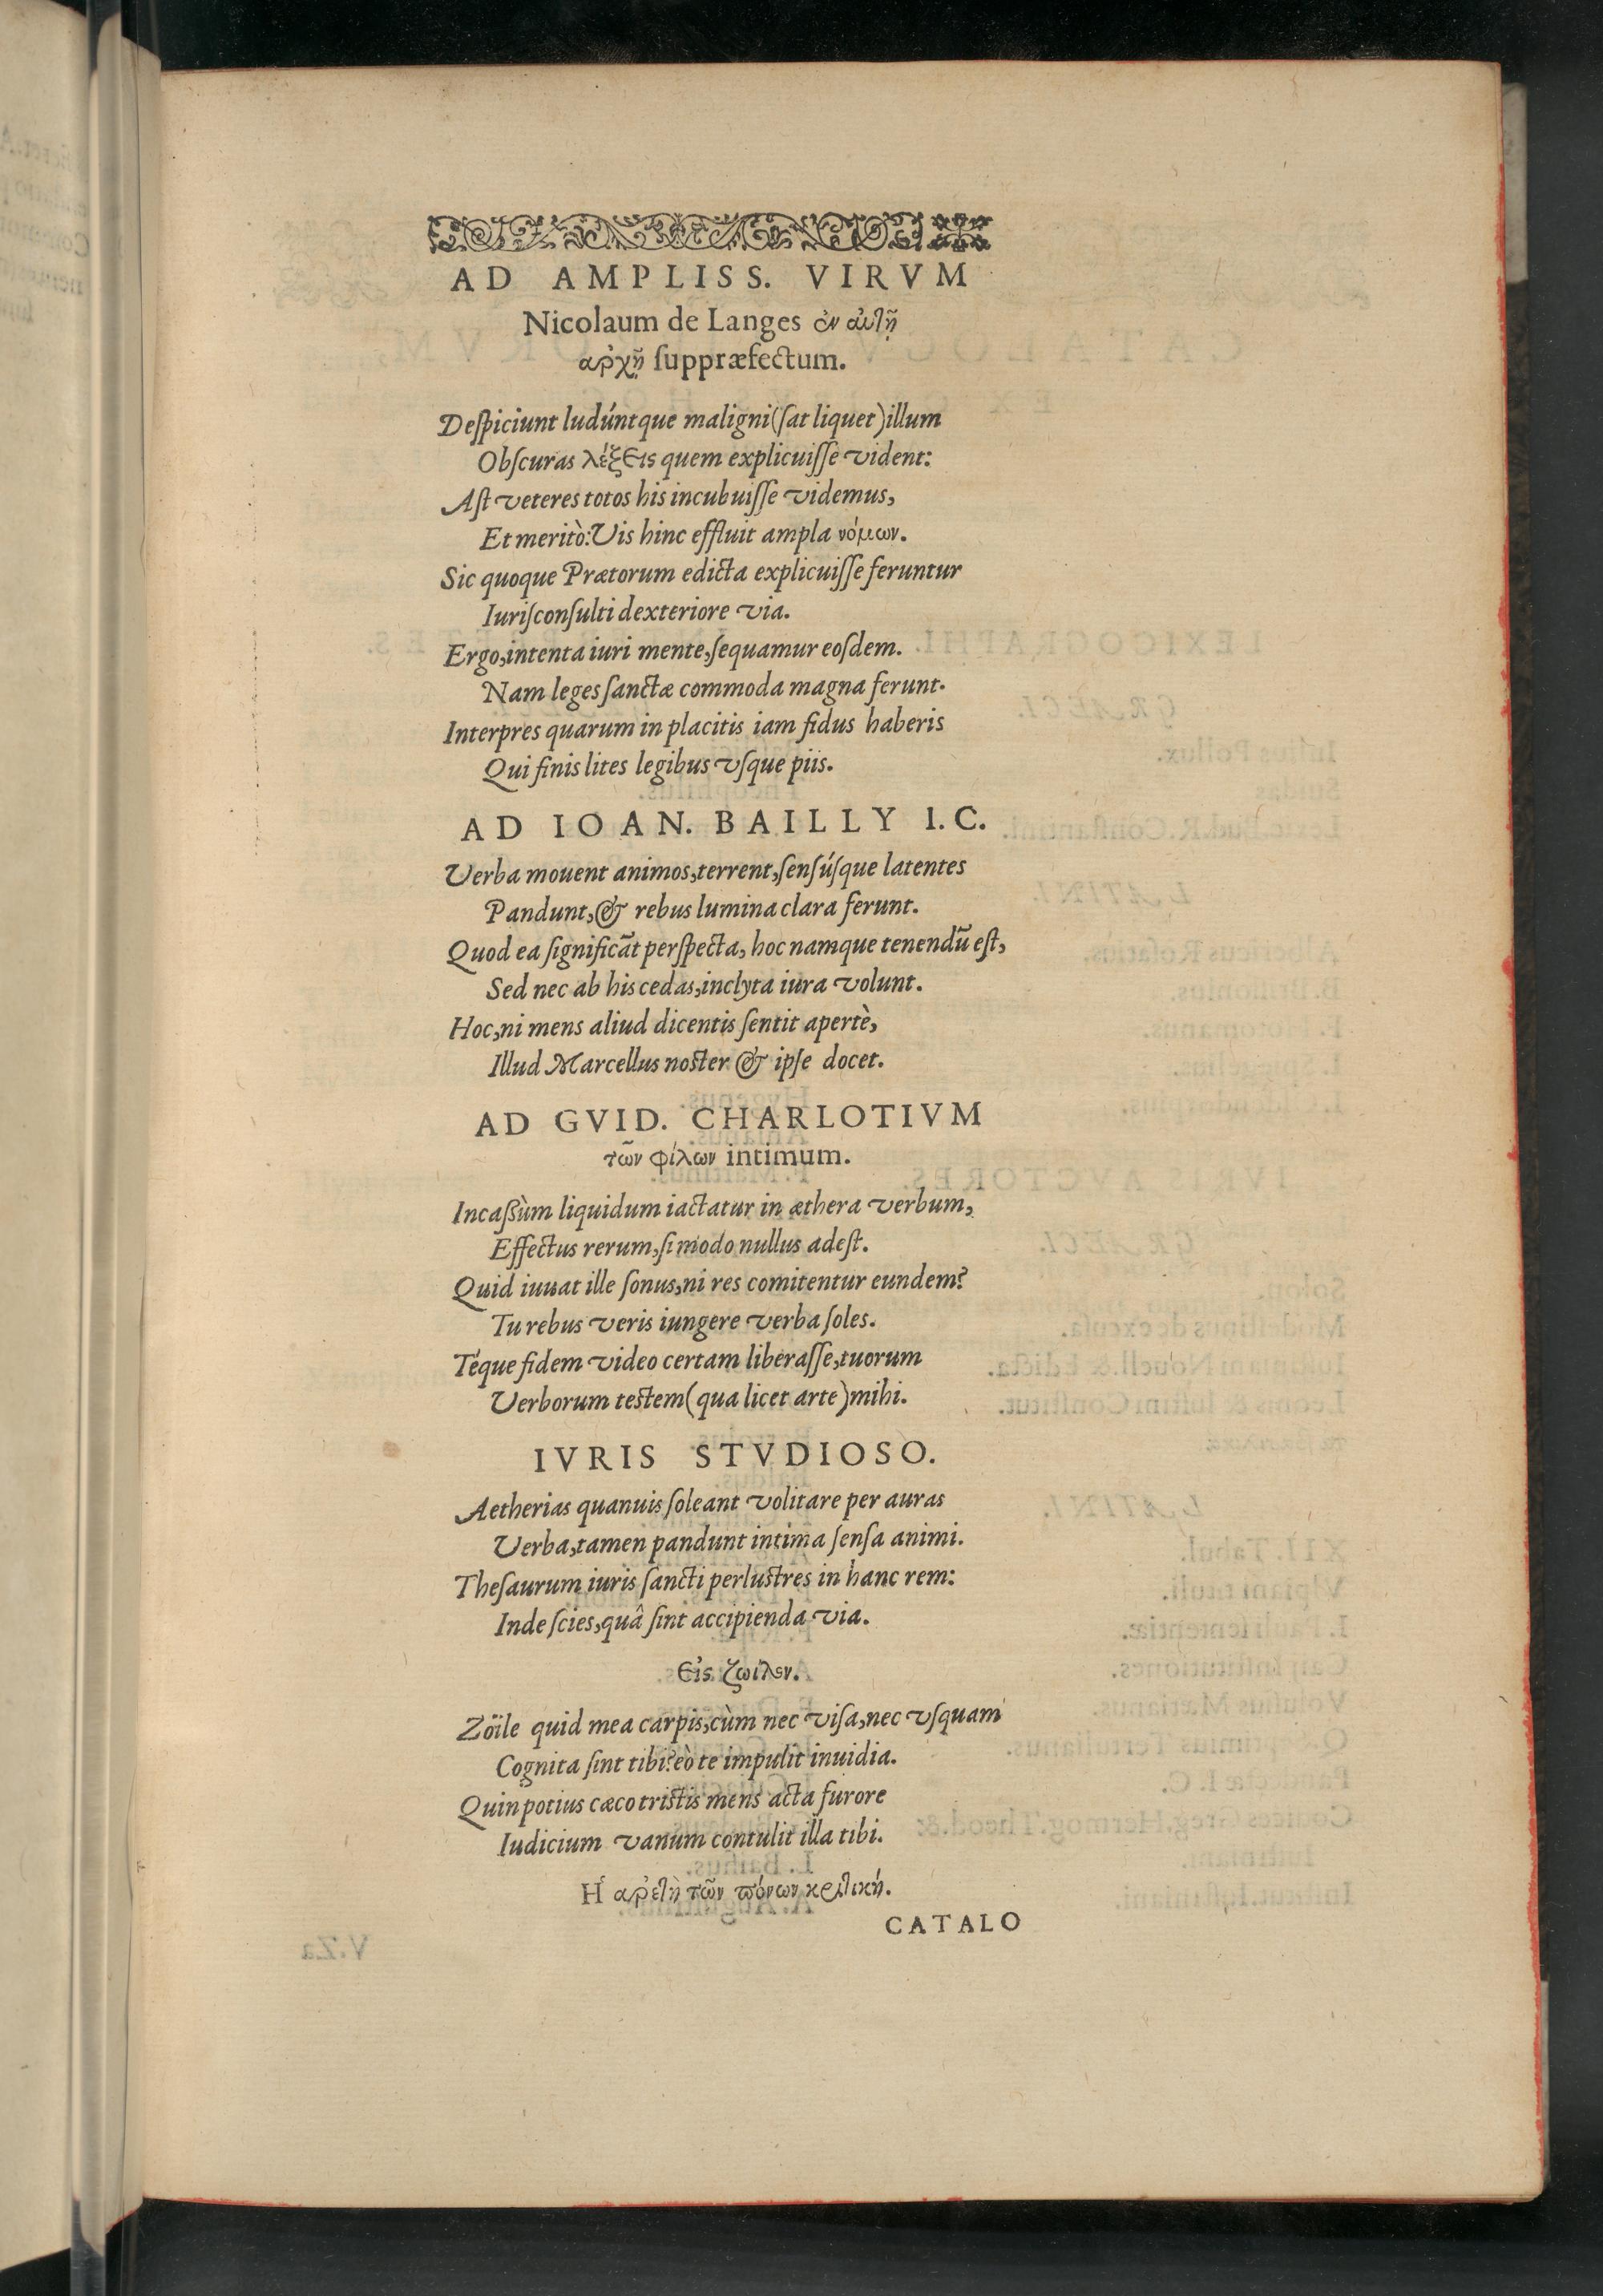 AD AMPLISS. VIRVM
Nicolaum de Langes ἐν αὐτῇ
ἀρχῇ ſuppræfectum.
Deſpiciunt ludúntque maligni (ſat liquet) illum
Obſcuras λέξεις quem explicuiſſe vident:
Aſt veteres totos his incubuiſſe videmus,
Et meritò: Vis hinc effluit ampla νόμων.
Sic quoque Prætorum edicta explicuiſſe feruntur
Iuriſconſulti dexteriore via.
Ergo, intenta iuri mente, ſequamur eoſdem.
Nam leges ſanctæ commoda magna ferunt.
Interpres quarum in placitis iam fidus haberis
Qui finis lites legibus vſque piis.
AD IOAN. BAILLY I. C.
Verba mouent animos, terrent, ſenſúſque latentes
Pandunt, & rebus lumina clara ferunt.
Quod ea ſignificãt perſpecta, hoc namque tenendũ eſt,
Sed nec ab his cedas, inclyta iura volunt.
Hoc, ni mens aliud dicentis ſentit apertè,
Illud Marcellus noster & ipſe docet.
AD GVID. CHARLOTIVM
τῶν φίλων intimum.
Incaßùm liquidum iactatur in æthera verbum,
Effectus rerum, ſi modo nullus adeſt.
Quid iuuat ille ſonus, ni res comitentur eundem?
Tu rebus veris iungere verba ſoles.
Téque fidem video certam liberaſſe, tuorum
Verborum testem (qua licet arte) mihi.
IVRIS STVDIOSO.
Aetherias quanuis ſoleant volitare per auras
Verba, tamen pandunt intima ſenſa animi.
Theſaurum iuris ſancti perlustres in hanc rem:
Inde ſcies, quâ ſint accipienda via.
Εἰς ζωίλον.
Zöile quid mea carpis, cùm nec viſa, nec vſquam
Cognita ſint tibi? eò te impulit inuidia.
Quin potius cæco tristis mens acta furore
Iudicium vanum contulit illa tibi.
Ἡ ἀρετὴ τῶν πόνων κριτική.
CATALO